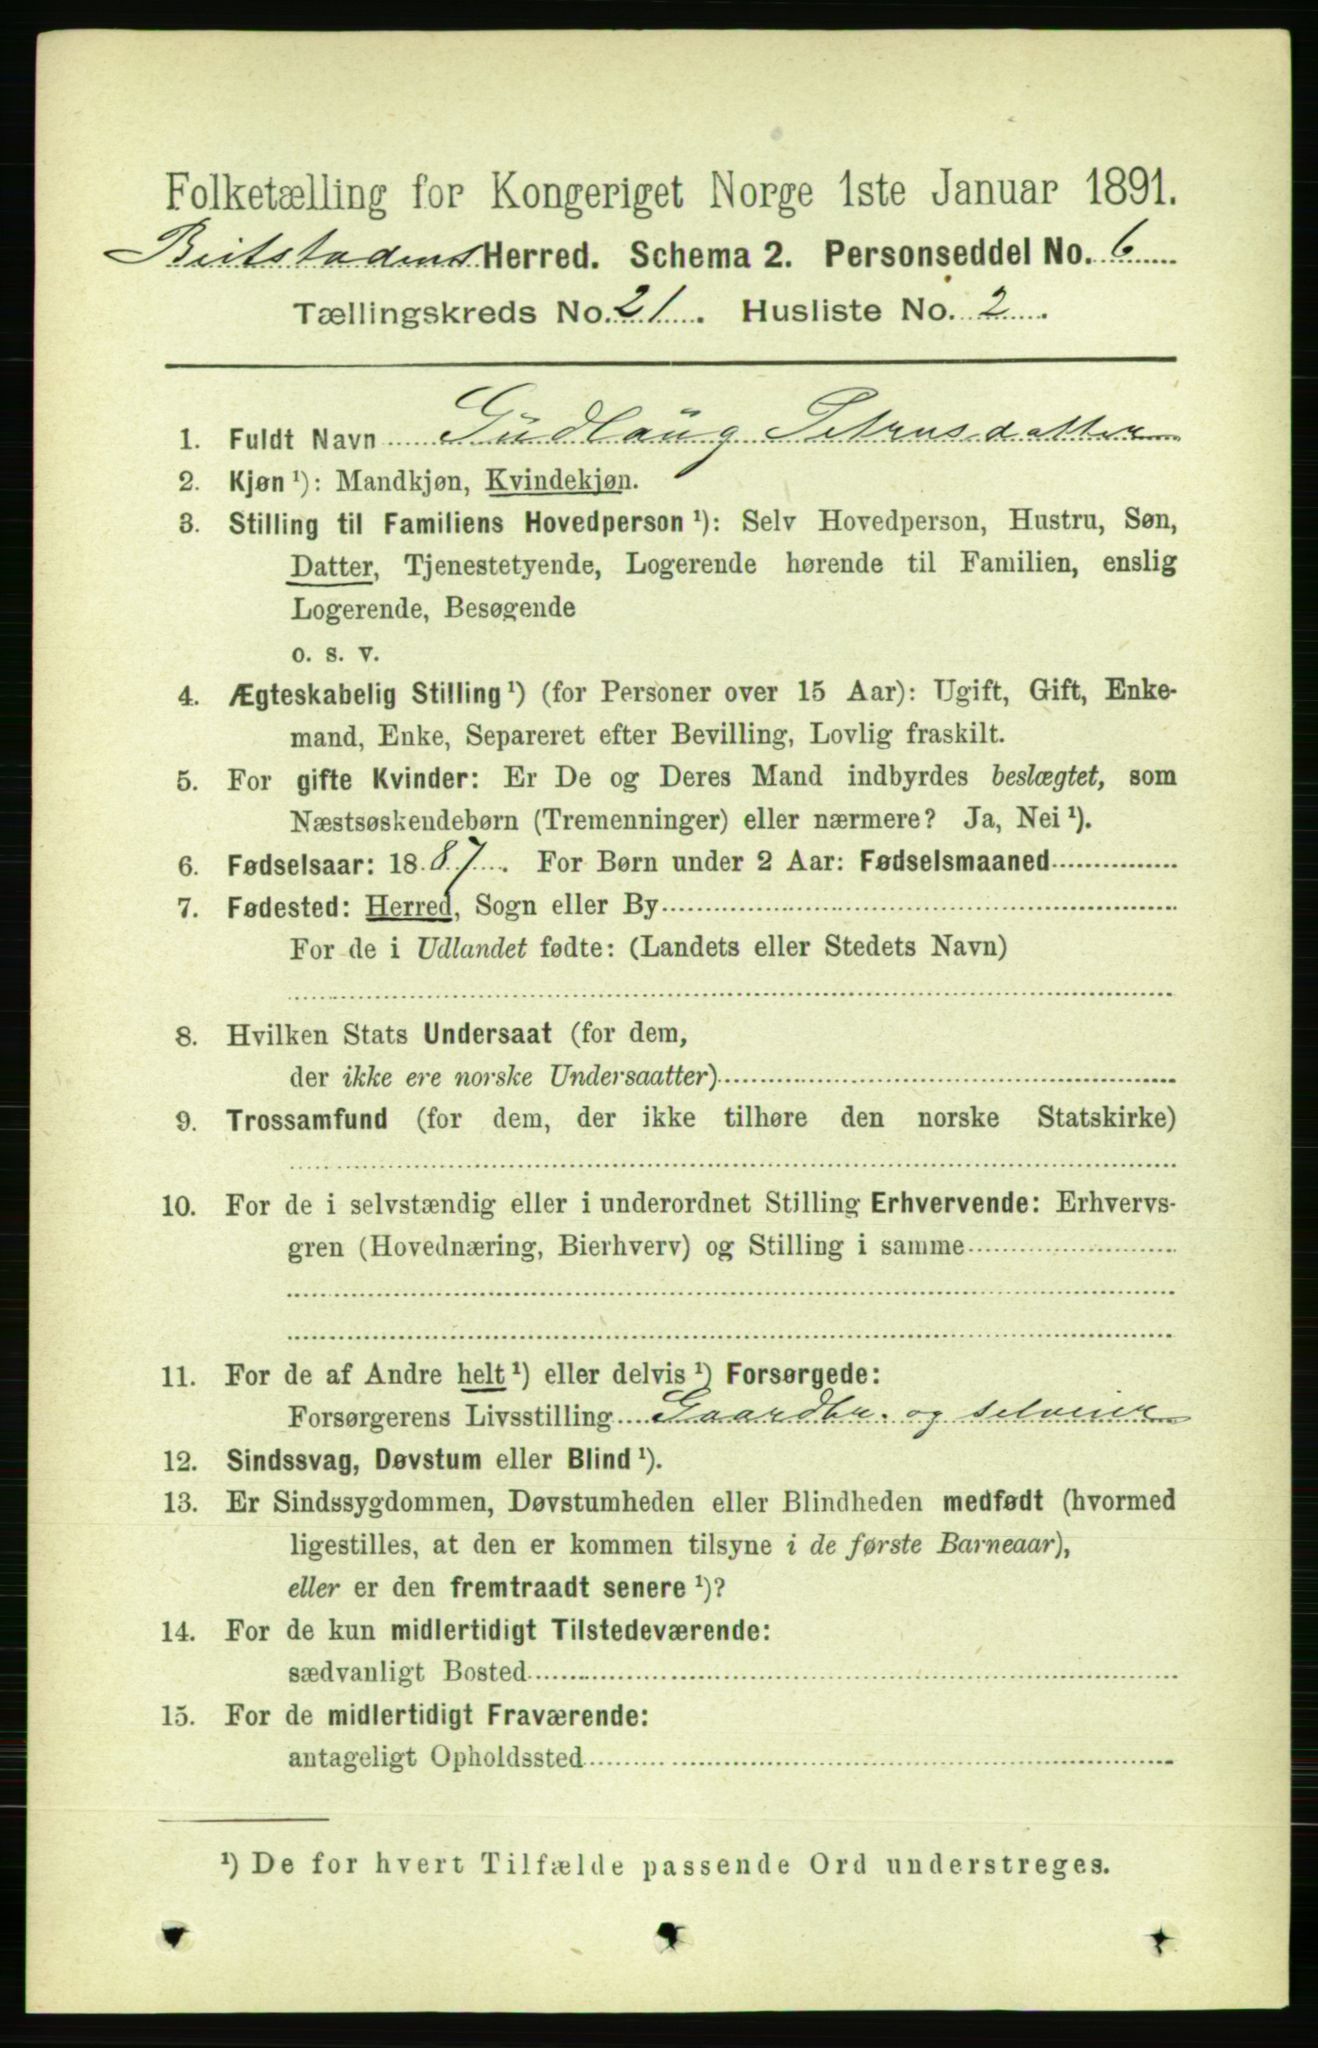 Folketælling for Kongeriget Norge 1ste Januar 1891.
Beitstadens Herred. Schema 2. Personseddel No. 6
Tællingskreds No. 21. Husliste No. 2.
1. Fuldt Navn Gudlaug Petersdatter
2. Kjøn¹): Mandkjøn, Kvindekjøn.
3. Stilling til Familiens Hovedperson¹): Selv Hovedperson, Hustru, Søn,
Datter, Tjenestetyende, Logerende hørende til Familien, enslig
Logerende, Besøgende
o. s. v.
4. Ægteskabelig Stilling¹) (for Personer over 15 Aar): Ugift, Gift, Enke-
mand, Enke, Separeret efter Bevilling, Lovlig fraskilt.
5. For gifte Kvinder: Er De og Deres Mand indbyrdes beslægtet, som
Næstsøskendebørn (Tremenninger) eller nærmere? Ja, Nei¹).
6. Fødselsaar: 1887. For Børn under 2 Aar: Fødselsmaaned
7. Fødested: Herred, Sogn eller By
For de i Udlandet fødte: (Landets eller Stedets Navn)
8. Hvilken Stats Undersaat (for dem,
der ikke ere norske Undersaatter)
9. Trossamfund (for dem, der ikke tilhøre den norske Statskirke)
10. For de i selvstændig eller i underordnet Stilling Erhvervende: Erhvervs-
gren (Hovednæring, Bierhverv) og Stilling i samme
11. For de af Andre helt¹) eller delvis¹) Forsørgede:
Forsørgerens Livsstilling Gaardbr. og selveier
12. Sindssvag, Døvstum eller Blind¹).
13. Er Sindssygdommen, Døvstumheden eller Blindheden medfødt (hvormed
ligestilles, at den er kommen tilsyne i de første Barneaar),
eller er den fremtraadt senere¹)?
14. For de kun midlertidigt Tilstedeværende:
sædvanligt Bosted
15. For de midlertidigt Fraværende:
antageligt Opholdssted
¹) De for hvert Tilfælde passende Ord understreges.